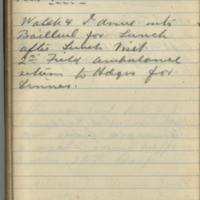 Walsh & I drive into
Bailleul for Lunch
after Lunch Visit
2nd Field Ambulance
return to Hdqrs for
Dinner.